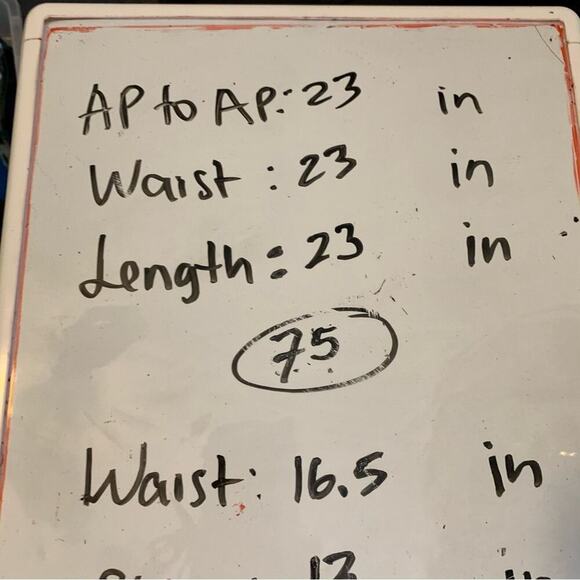 AP to AP: 23 in
Waist : 23 in
Length : 23 in
75
Waist: 16.5 in